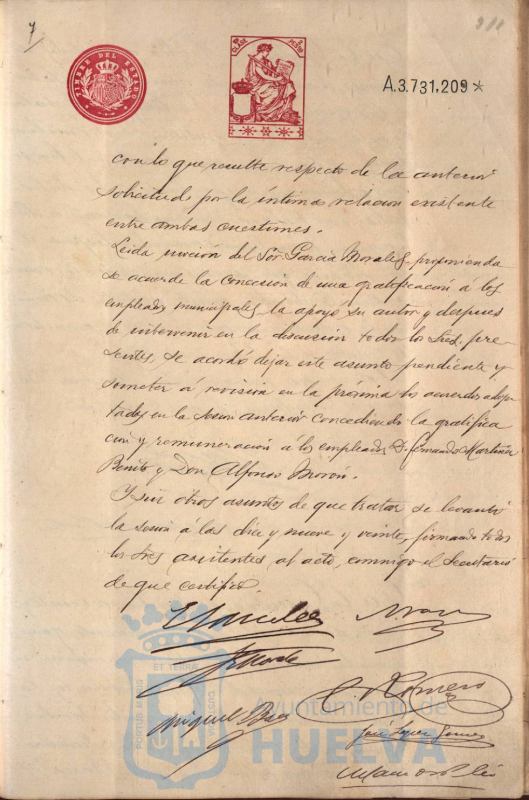 7
TIMBRE DEL ESTADO
CLASE
PESETAS
A.3.731,209 *
con lo que resulte respecto de la anterior
solicitud por la íntima relacion existente
entre ambas cuestiones.
Leida moción del Sor. Garcia Morales, proponiendo
se acuerde la concesion de una gratificacion á los
empleados municipales, la apoyó su autor y despues
de intervenir en la discusion todos los Sres. pre-
sentes, se acordó dejar este asunto pendiente y
someter á revision en la próxima los acuerdos adop
tados en la sesion anterior concediendo la gratifica
cion y remuneracion á los empleados D. Fernando Martinez
Benito y Don Alfonso Moron.
Y sin otros asuntos de que tratar se levantó
la sesion á las diez y nueve y veinte, firmando todos
los Sres. asistentes al acto, conmigo el Secretario
de que certifico.
Miguel Baez
Romero
José Lopez Gomez
PORTUS MARIS
ET TERRAE
CUSTODIA
Ayuntamiento de
HUELVA